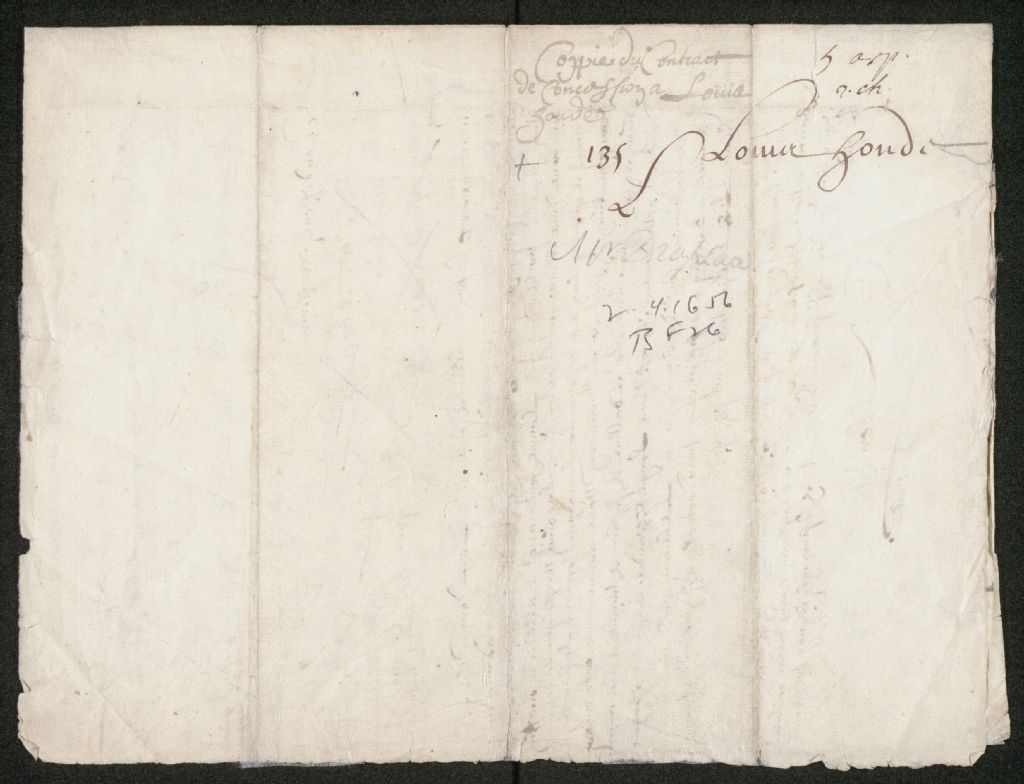 Coppie du Contract
de Concession a Louis
houde
5 arp.
2. ch.
+ 135 Louis houde
2. 4. 1656
B F 26